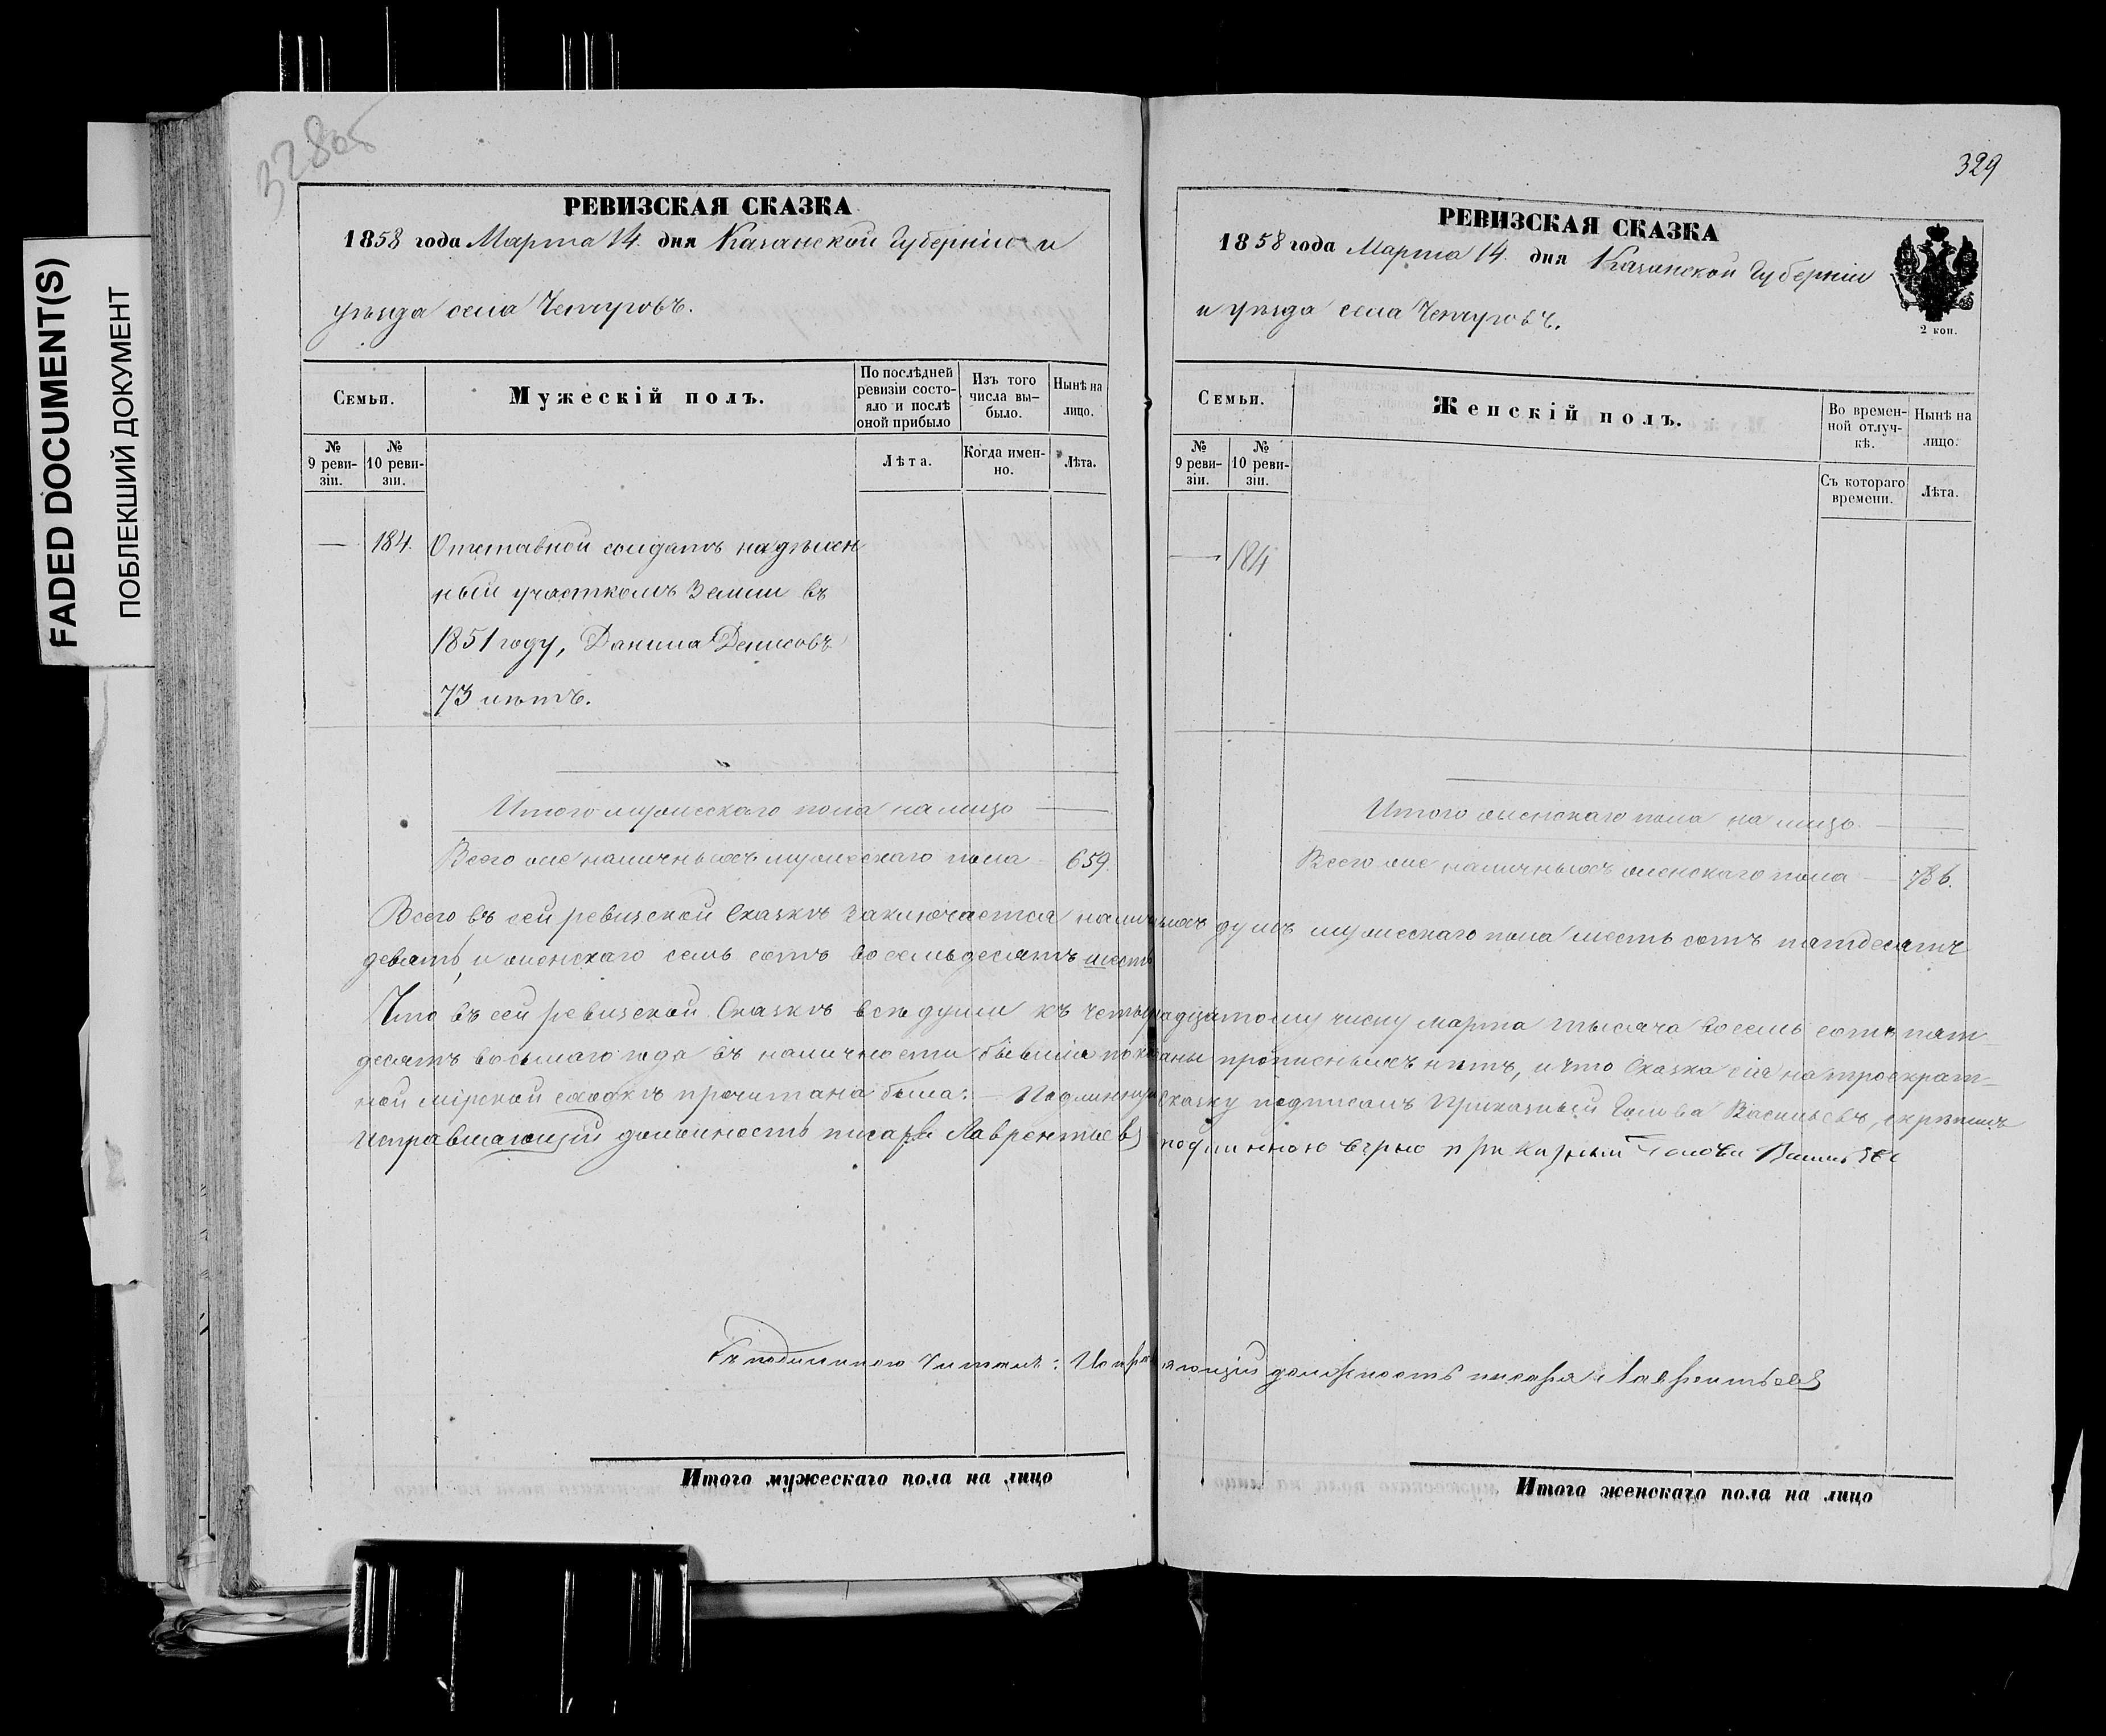 FADED DOCUMENT(S)
ПОБЛЕКШИЙ ДОКУМЕНТ
328об
РЕВИЗСКАЯ СКАЗКА
1858 года Марта 14. дня Казанской Губерніи и
уѣзда села Чепчуговъ.
Семьи.
Мужескій полъ.
По послѣдней ревизіи состояло и послѣ оной прибыло
Изъ того числа выбыло.
Нынѣ на лицо.
№ 9 ревизіи.
№ 10 ревизіи.
Лѣта.
Когда именно.
Лѣта.
— 184. Отставной солдатъ надѣлен
ный участкомъ Земли въ
1851 году, Данила Денисовъ
73 лѣтъ.
Итого мужескаго пола на лицо —
Всего же наличныхъ мужескаго пола 659.
329
РЕВИЗСКАЯ СКАЗКА
1858 года Марта 14. дня Казанской Губерніи
и уѣзда села Чепчуговъ.
2 коп.
Семьи.
Женскій полъ.
Во временной отлучкѣ.
Нынѣ на лицо.
№ 9 ревизіи.
№ 10 ревизіи.
Съ котораго времени.
Лѣта.
— 184
Итого женскаго пола на лицо —
Всего же наличныхъ женскаго пола — 786.
Всего въ сей ревизской Сказкѣ заключается наличныхъ душъ мужескаго пола шесть сотъ пятдесятъ
девять, и женскаго семь сотъ восемьдесятъ шесть
Что въ сей ревизской Сказкѣ всѣ души къ четырнадцатому числу марта тысяча восемь сотъ пят-
десятъ восьмаго года въ наличности бывшія показаны прописныхъ нѣтъ, и что Сказка сія на троекрат-
ной мірской сходкѣ прочитана была: — Подлинную Сказку подписалъ Приказный Голова Васильевъ, скрѣпилъ
Исправляющій должность писаря Лаврентьевъ подлинною вѣрно приказный Голова Васильевъ
Съ подлинною читалъ: Исправляющій должность писаря Лаврентьевъ
Итого мужескаго пола на лицо
Итого женскаго пола на лицо